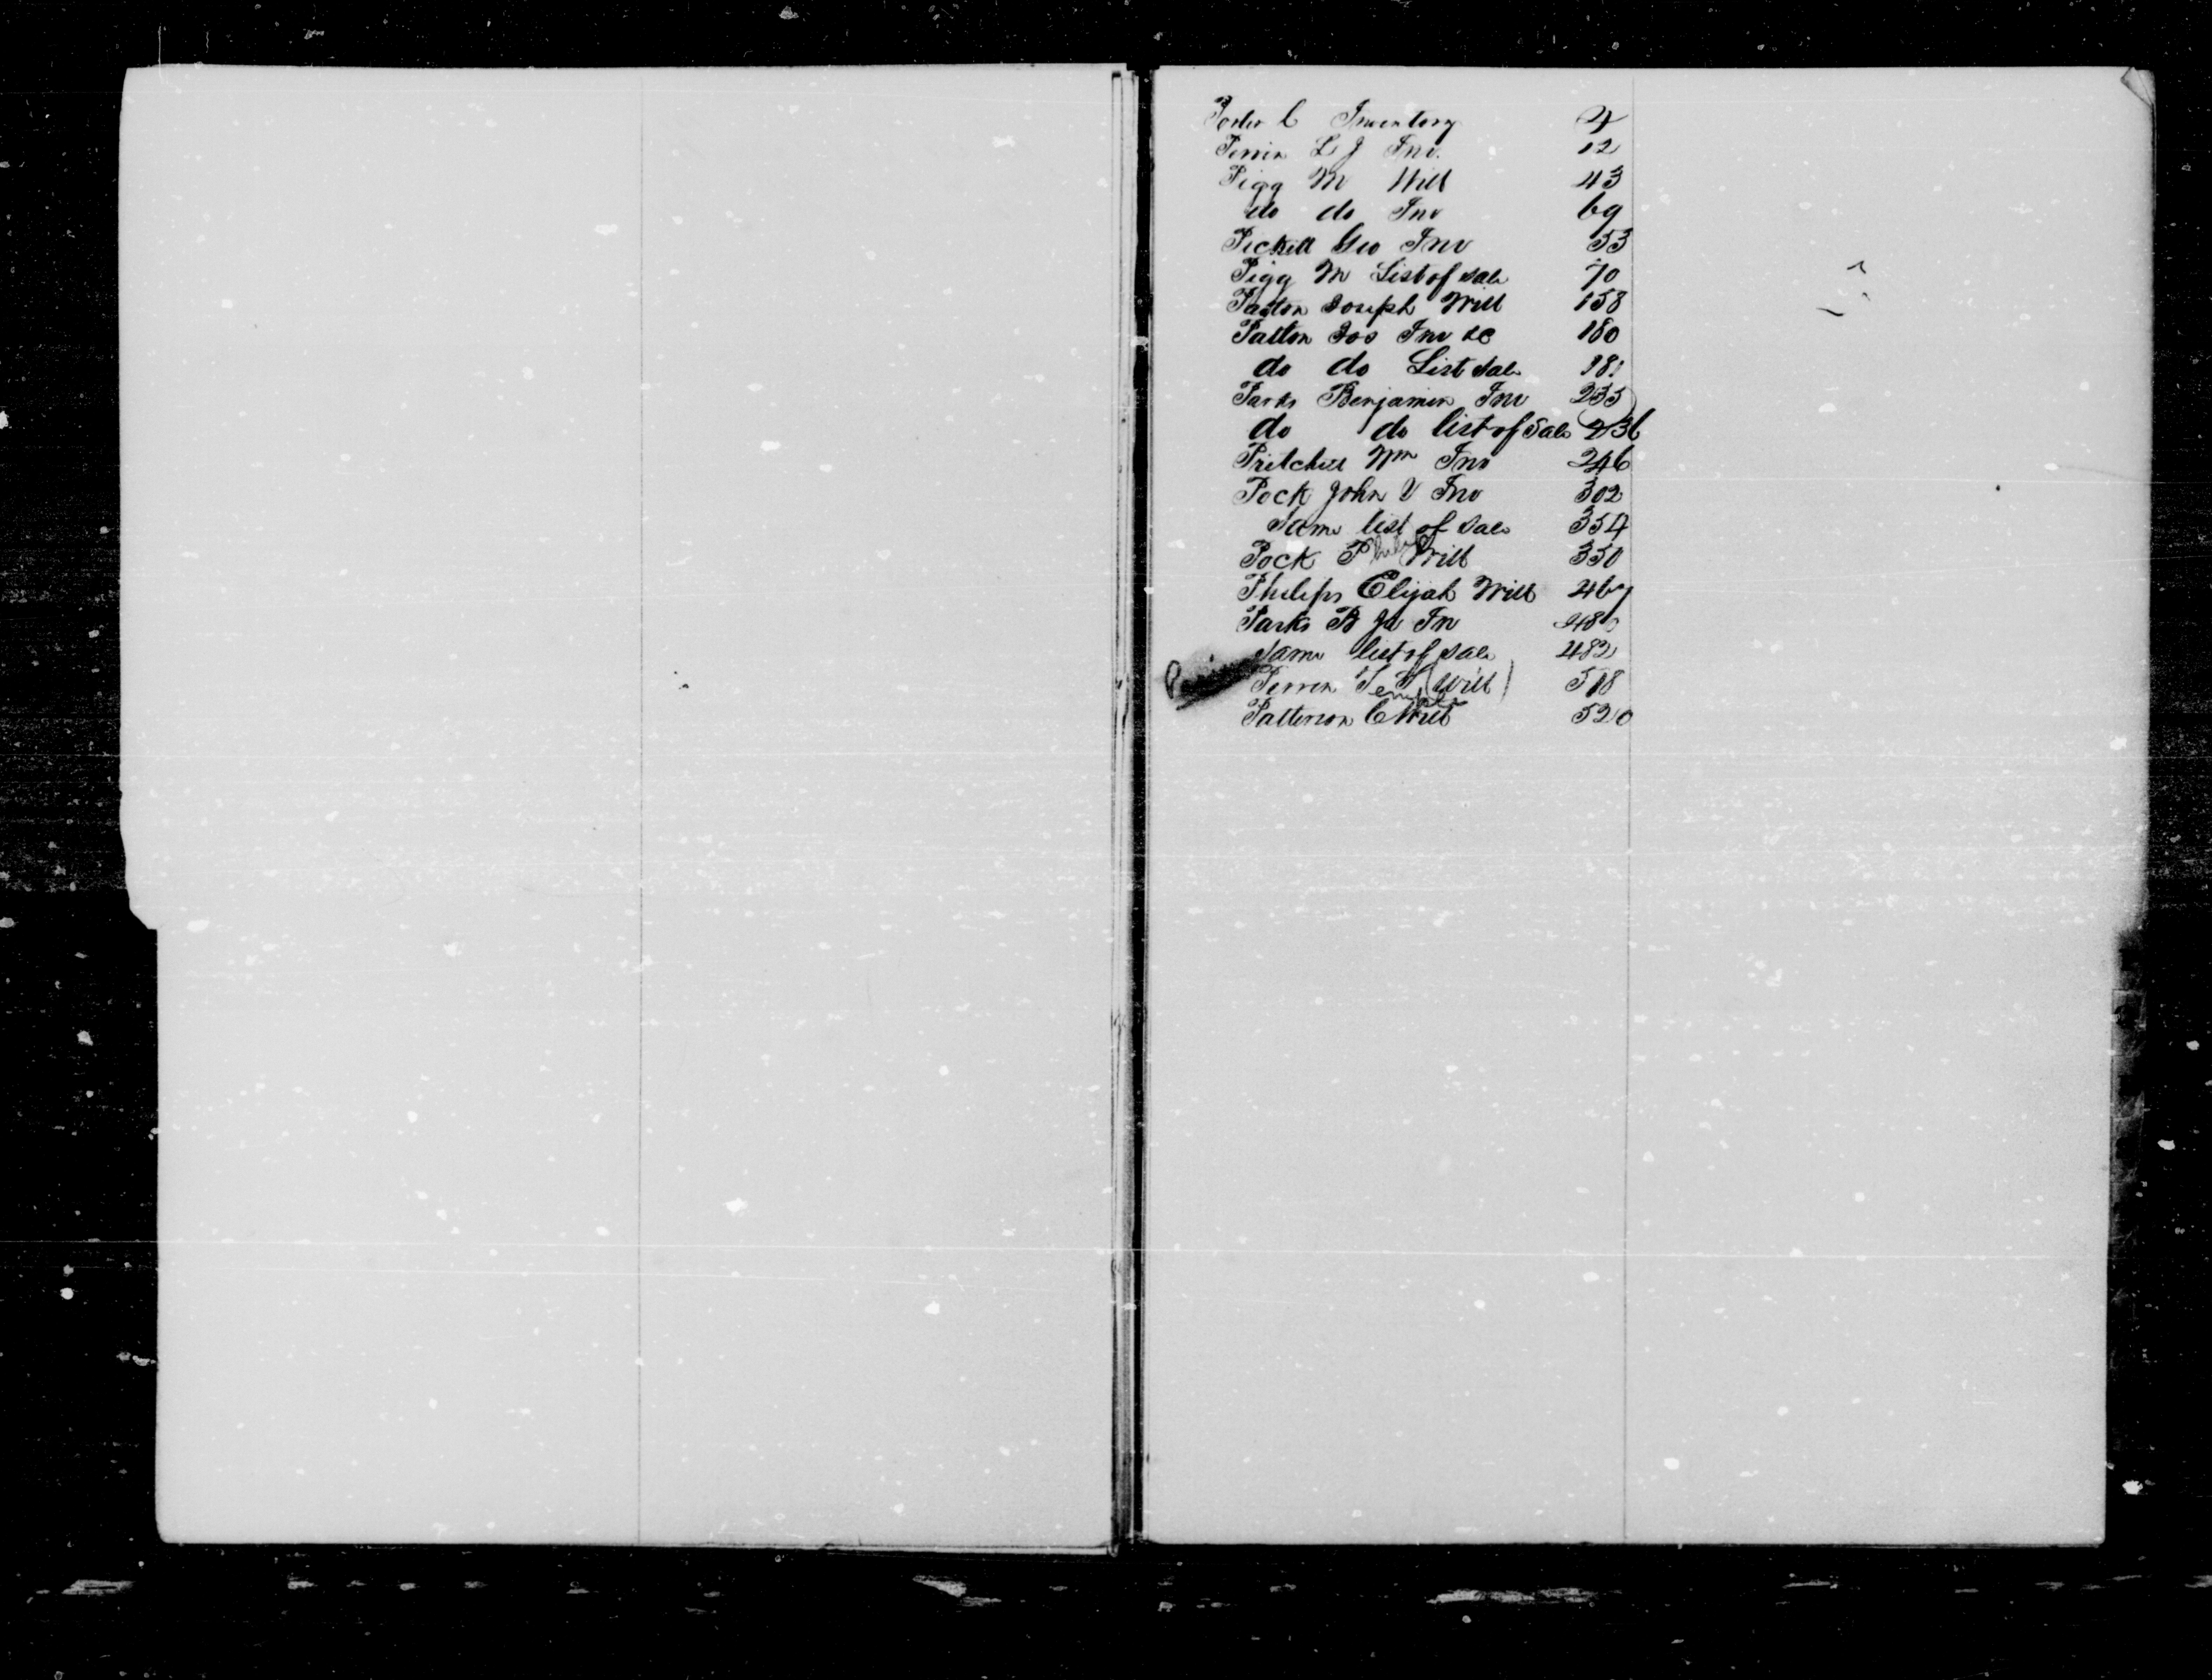 Porter C Inventory 4
Perrin L J Inv. 12
Pigg M Will 43
do do Inv 69
Pickett Geo Inv 53
Pigg M List of sale 70
Patton Joseph Will 158
Patton Jos Inv &c 180
do do List sale 181
Parks Benjamin Inv 235
do do list of Sale 236
Pritchett Wm Inv 246
Pock John V Inv 302
Same list of sale 354
Pock P Will 350
Philips Elijah Will 469
Parks B Ja In 480
Same list of sale 482
Perrin T T (Will) 518
Temple
Patterson C Will 520